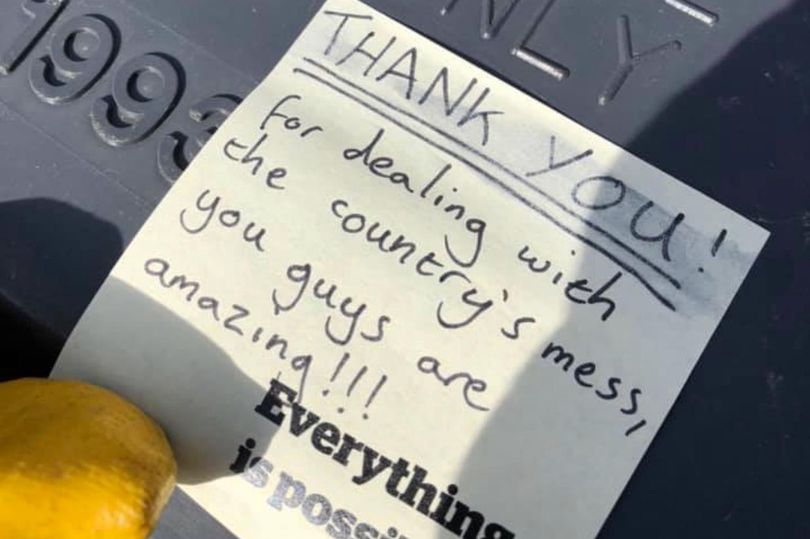 NLY
1993
THANK YOU!
for dealing with
the country's mess,
you guys are
amazing!!!
Everything
is